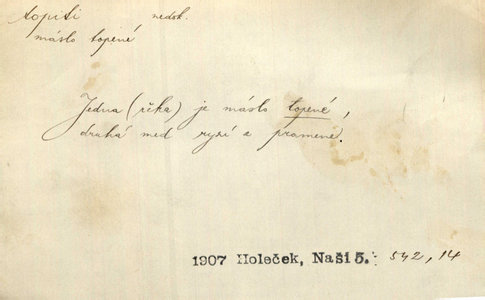 topiti nedok.
máslo topené
Jedna (řeka) je máslo topené,
druhá med ryzí a pramené.
1907 Holeček, Naši 5. 542, 14